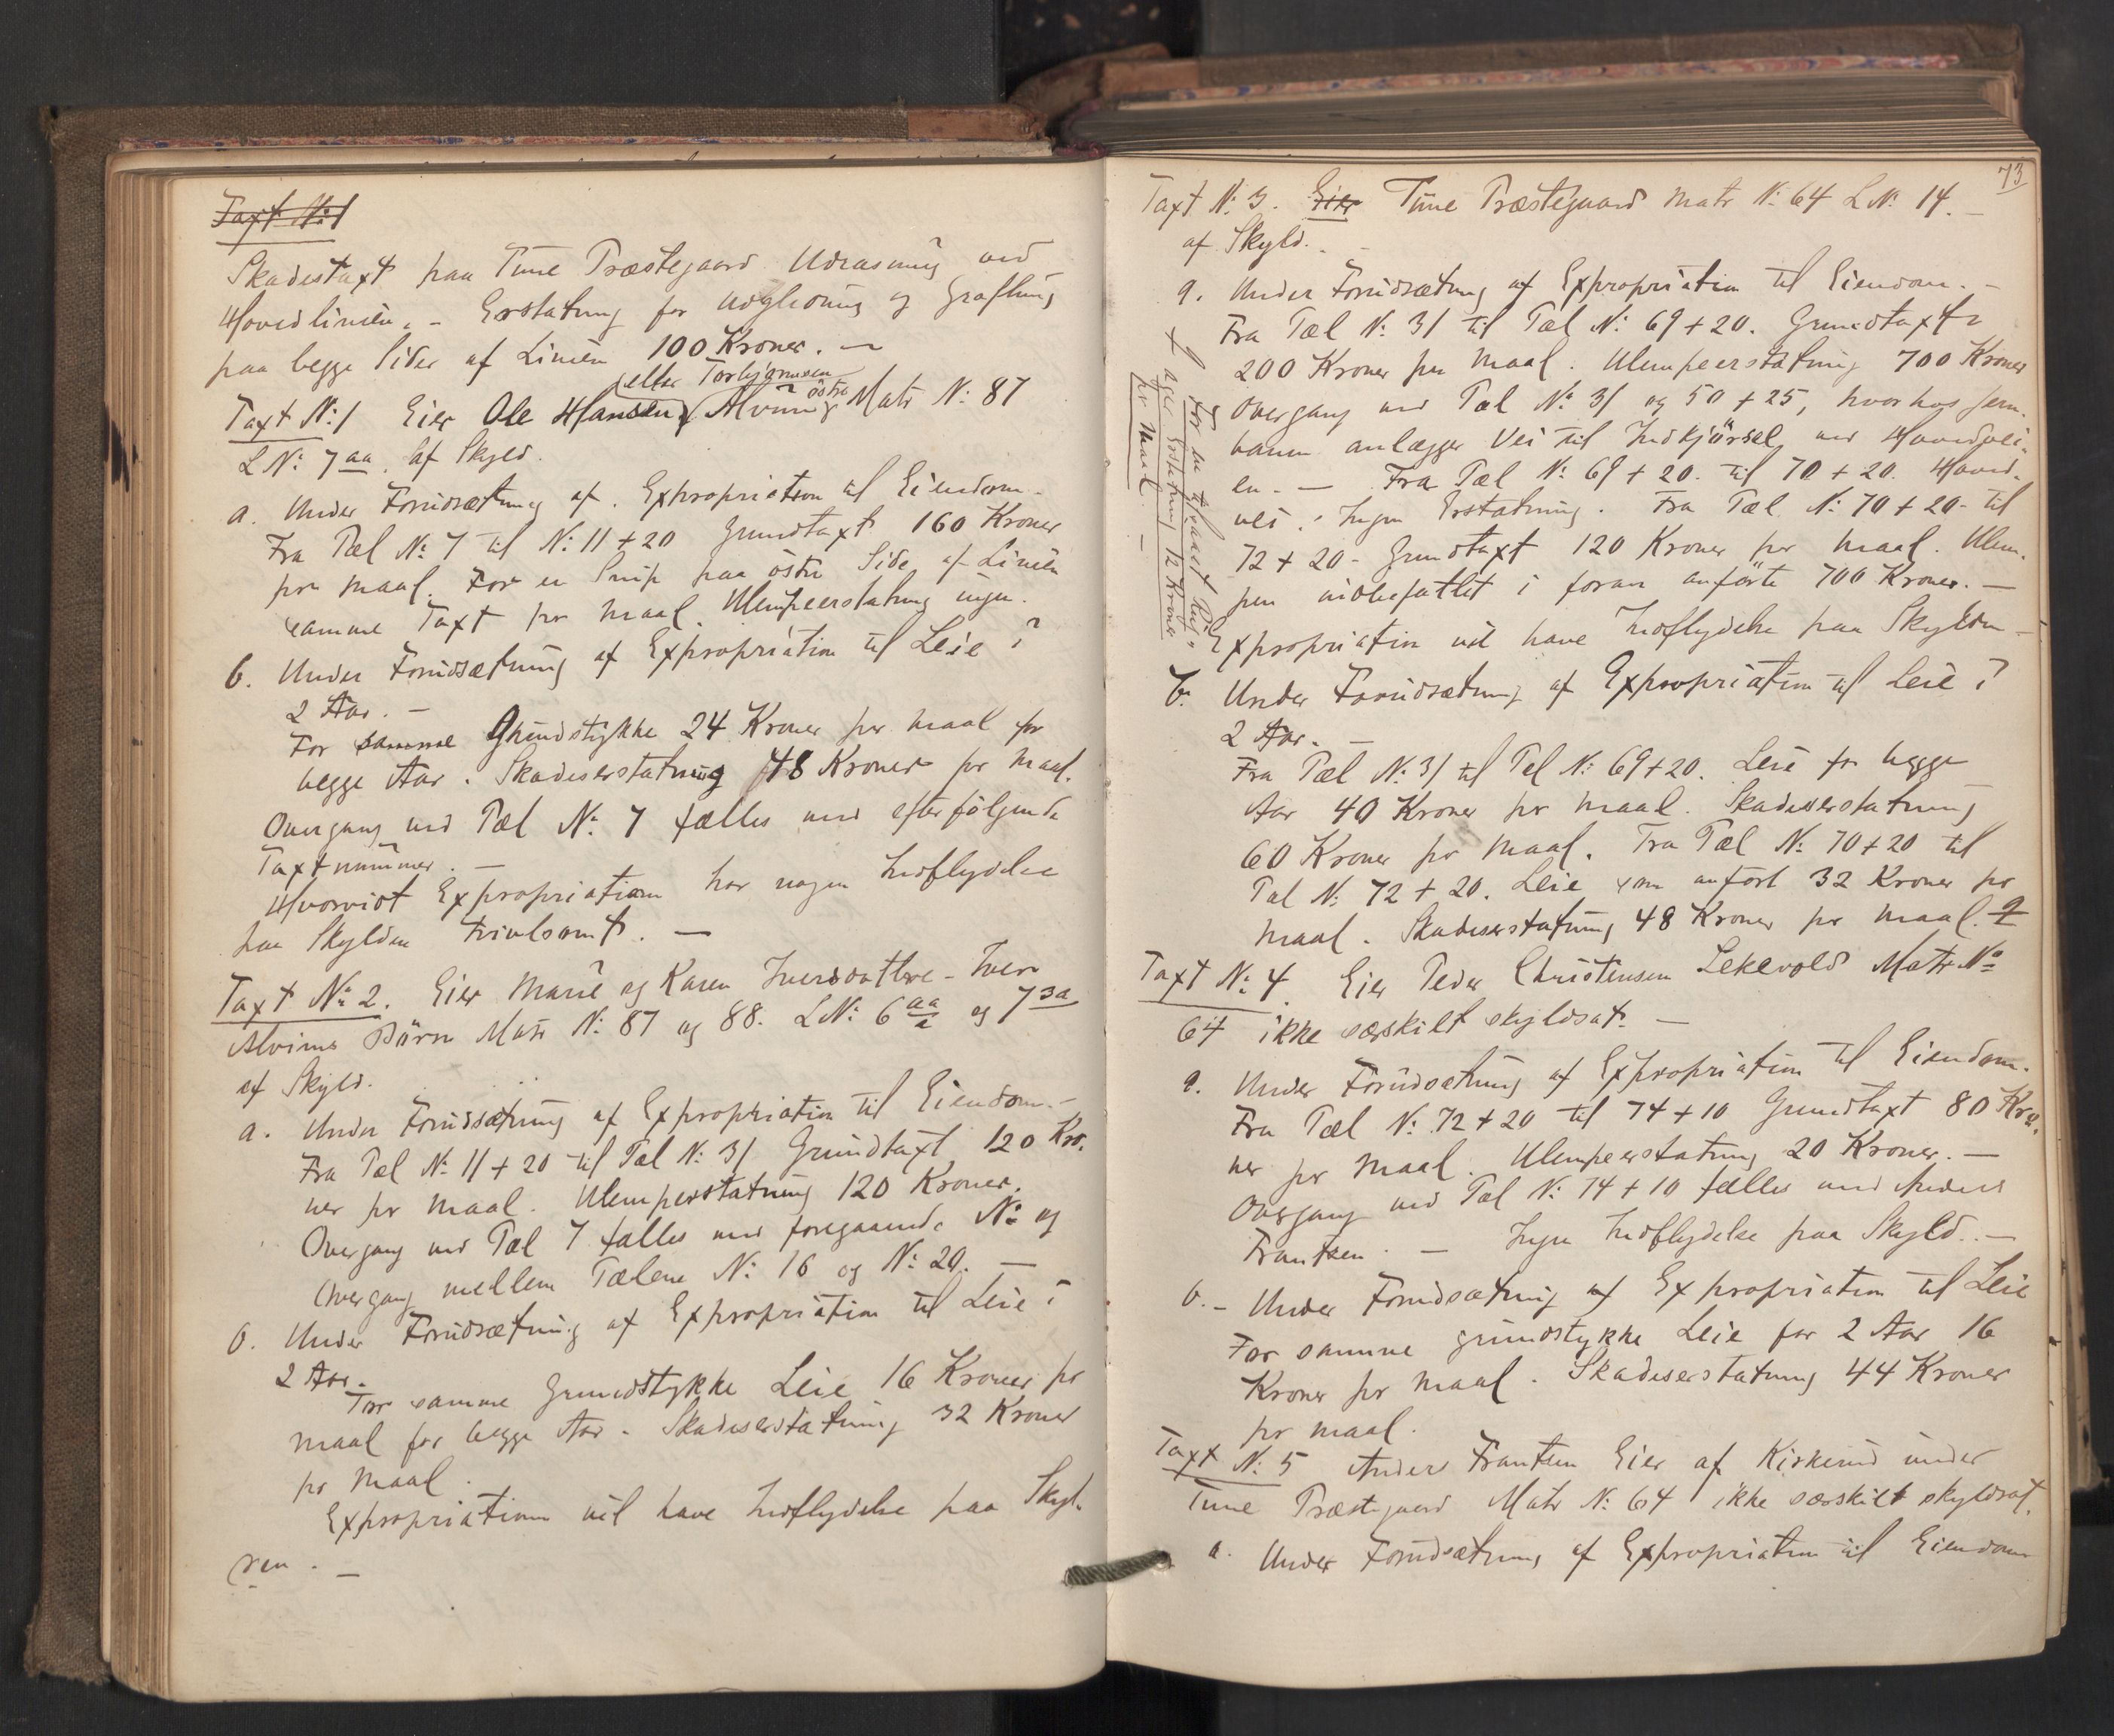 Taxt N: 1
Skadestaxt paa Tune Præstegaard Udrasning ved
Hovedlinien. - Erstatning for Udglidning og Grøftning
paa begge Sider af Linien 100 Kroner. -
eller Torbjørnsen
Taxt N: 1 Eier Ole Hansen, Alvim østre Matr N: 87
L N: 7 aa. af Skyld.
a. Under Forudsætning af Expropriation til Eiendom.
Fra Pæl N: 7 til N: 11 + 20 Grundtaxt 160 Kroner
pr Maal. For en Snip paa østre Side af Linien
samme Taxt pr Maal. Ulempeerstatning ingen.
b. Under Forudsætning af Expropriation til Leie i
2 Aar. -
For samme Grundstykke 24 Kroner per Maal for
begge Aar. Skadeserstatning 48 Kroner pr Maal.
Overgang ved Pæl N: 7 fælles med efterfølgende
Taxtnummer. -
Hvorvidt Expropriationen har nogen Indflydelse
paa Skylden tvivlsomt. -
Taxt N: 2. Eier Marie og Karen Iversdøttre - Iver
Alvims Børn Matr N: 87 og 88. L N: 6 aa/a og 7 3a
af Skyld.
a. Under Forudsætning af Expropriation til Eiendom. -
Fra Pæl N: 11 + 20 til Pæl N: 31 Grundtaxt 120 Kro-
ner pr Maal. Ulemperstatning 120 Kroner.
Overgang ved Pæl 7 fælles med foregaaende N: og
Overgang mellem Pælene N: 16 og N: 20. -
b. Under Forudsætning af Expropriation til Leie i
2 Aar.
For samme Grundstykke Leie 16 Kroner pr
Maal for begge Aar. Skadeserstatning 32 Kroner
pr Maal.
Expropriationen vil have Indflydelse paa Skyl-
den. -
73
Taxt N: 3. Eier Tune Præstegaard Matr N: 64 L N: 14. -
af Skyld. -
a. Under Forudsætning af Expropriation til Eiendom. -
Fra Pæl N: 31 til Pæl N: 69 + 20. Grundtaxt
200 Kroner per Maal. Ulempeerstatning 700 Kroner
Overgang ved Pæl N: 31 og 50 + 25, hvorhos Jern-
banen anlægger Vei til Indkjørsel ved Hovedvei-
en. - Fra Pæl N: 69 + 20. til 70 + 20. Hoved-
vei. Ingen Erstatning. Fra Pæl N: 70 + 20 - til
72 + 20 - Grundtaxt 120 Kroner per Maal. Ulem-
pen indbefattet i foran anførte 700 Kroner. -
Expropriation vil have Indflydelse paa Skylden -
b. Under Forudsætning af Expropriation til Leie i
2 Aar. -
Fra Pæl N: 31 til Pæl N: 69 + 20. Leie for begge
Aar 40 Kroner pr Maal. Skadeserstatning
60 Kroner pr Maal. Fra Pæl N: 70 + 20 til
Pæl N: 72 + 20. Leie som anført 32 Kroner pr
Maal. Skadeserstatning 48 Kroner pr Maal.
For en
ager Erstatning 12 Kroner
pr Maal. -
Taxt N: 4. Eier Peder Christensen Lekevold Matr N:
64 ikke særskilt skyldsat. -
a. Under Forudsætning af Expropriation til Eiendom.
Fra Pæl N: 72 + 20 til 74 + 10 Grundtaxt 80 Kro-
ner pr Maal. Ulempeerstatning 20 Kroner. -
Overgang ved Pæl N: 74 + 10 fælles med Anders
Frantzen. - Ingen Indflydelse paa Skyld. -
b. - Under Forudsætning af Expropriation til Leie
For samme Grundstykke Leie for 2 Aar 16
Kroner pr Maal. Skadeserstatning 44 Kroner
pr Maal.
Taxt N: 5 Anders Frantzen Eier af Kirkerud under
Tune Præstegaard Matr N: 64 ikke særskilt skyldsat.
a. Under Forudsætning af Expropriation til Eiendom